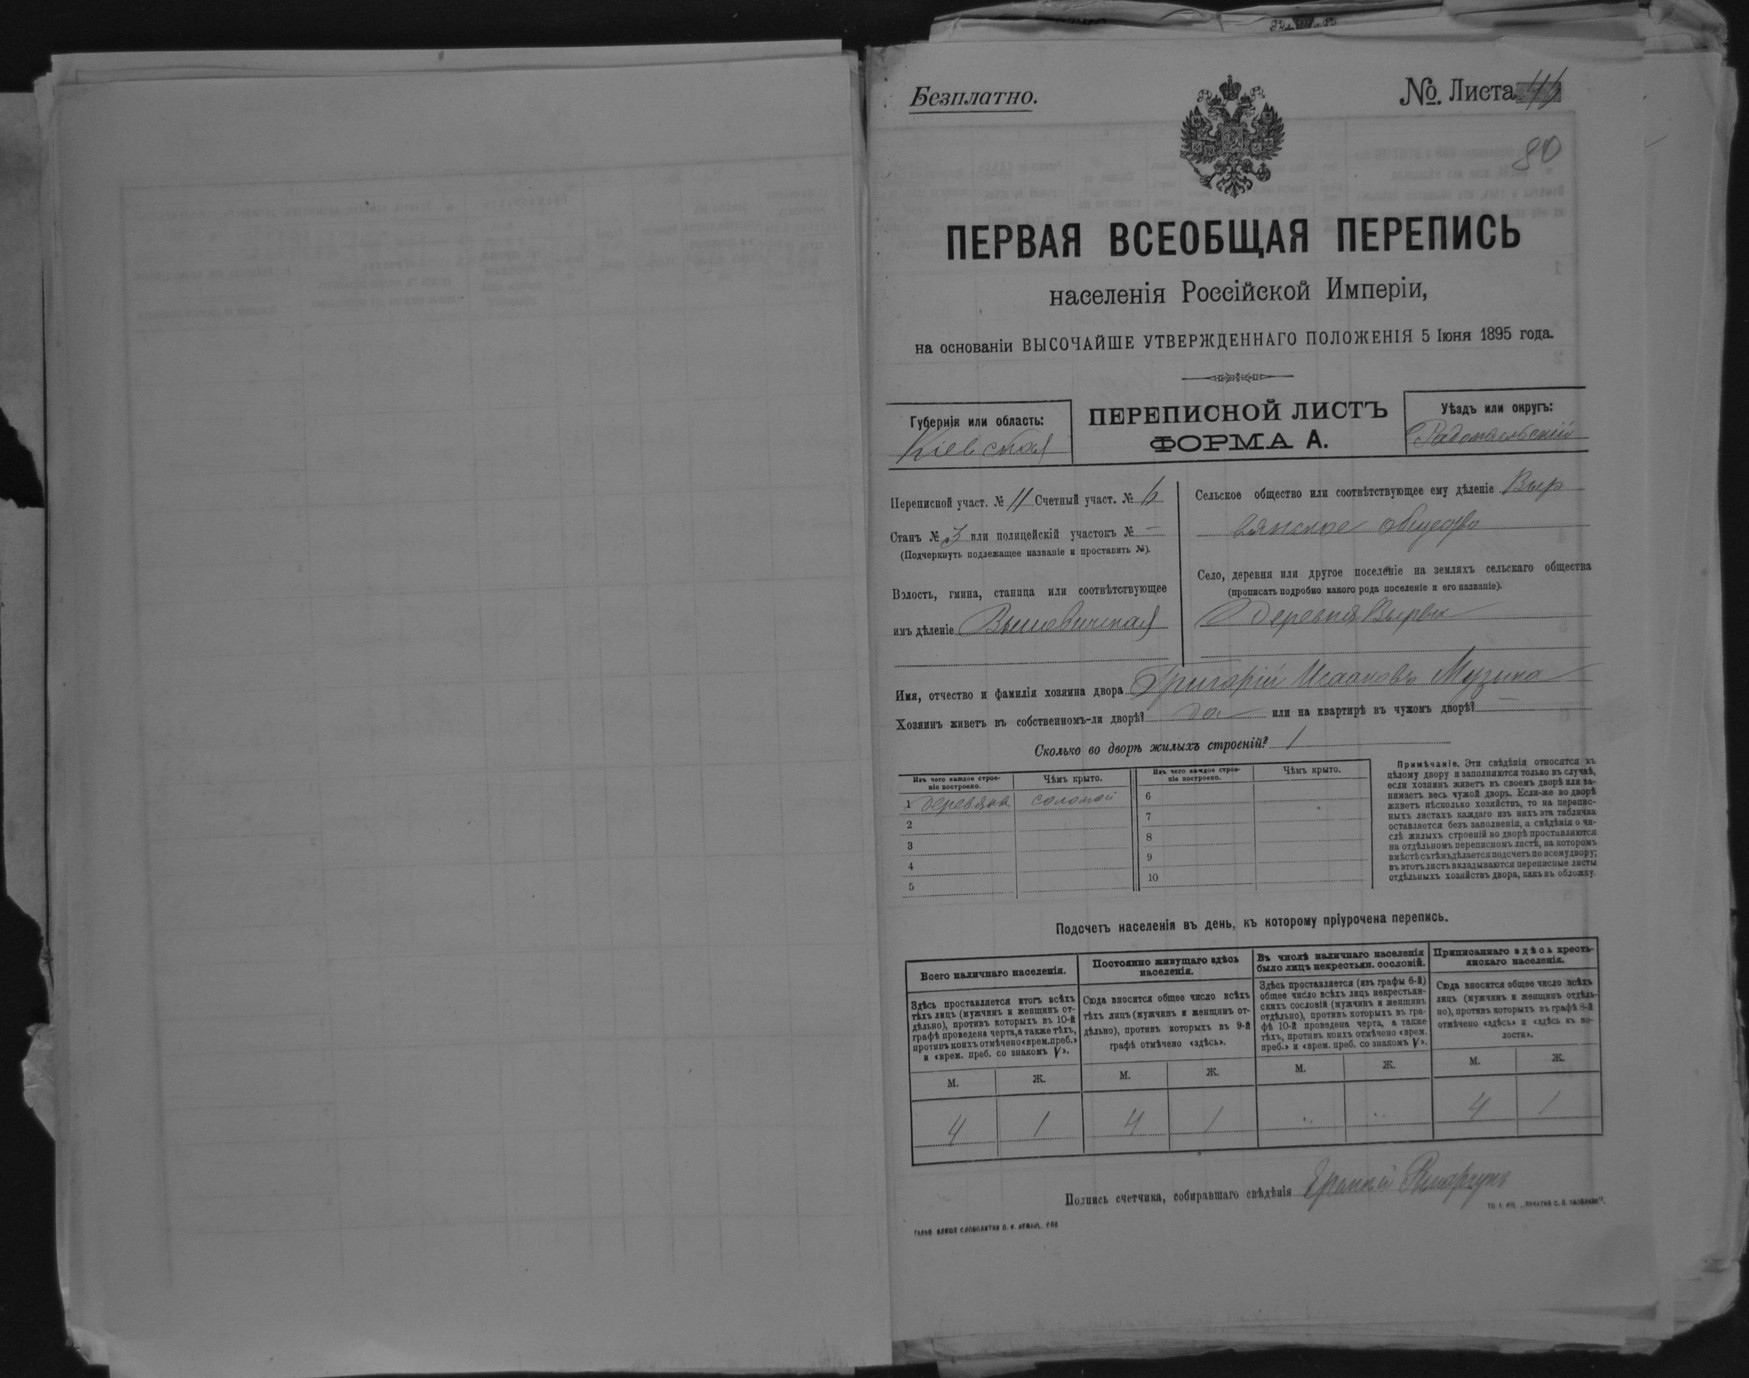 Безплатно.
№. Листа
80
ПЕРВАЯ ВСЕОБЩАЯ ПЕРЕПИСЬ
населенія Россійской Имперіи,
на основаніи ВЫСОЧАЙШЕ УТВЕРЖДЕННАГО ПОЛОЖЕНІЯ 5 Іюня 1895 года.
Губернія или область:
Кіевская
ПЕРЕПИСНОЙ ЛИСТЪ
ФОРМА А.
Уѣздъ или округъ:
Радомысльскій
Переписной участ. № 11 Счетный участ. № 6
Станъ № 3 или полицейскій участокъ № —
(Подчеркнуть подлежащее названіе и проставить №).
Волость, гмина, станица или соотвѣтствующее
имъ дѣленіе
Сельское общество или соотвѣтствующее ему дѣленіе Выр
вянское общество
Село, деревня или другое поселеніе на земляхъ сельскаго общества
(прописать подробно какого рода поселеніе и его названіе).
Деревня Вырва
Имя, отчество и фамилія хозяина двора Григорій Исааковъ Музыка
Хозяинъ живетъ въ собственномъ-ли дворѣ? да или на квартирѣ въ чужомъ дворѣ? —
Сколько во дворѣ жилыхъ строеній? 1
Изъ чего каждое строе-
ніе построено.
Чѣмъ крыто.
1 деревян. соломой
2
3
4
5
Изъ чего каждое строе-
ніе построено.
Чѣмъ крыто.
6
7
8
9
10
Примѣчаніе. Эти свѣдѣнія относятся къ
цѣлому двору и заполняются только въ случаѣ,
если хозяинъ живетъ въ своемъ дворѣ или за-
нимаетъ весь чужой дворъ. Если-же во дворѣ
живетъ нѣсколько хозяйствъ, то на перепис-
ныхъ листахъ каждаго изъ нихъ эта табличка
оставляется безъ заполненія, а свѣдѣнія о чи-
слѣ жилыхъ строеній во дворѣ проставляются
на отдѣльномъ переписномъ листѣ, на которомъ
вмѣстѣ съ тѣмъ дѣлается подсчетъ по всему двору;
въ этотъ листъ вкладываются переписные листы
отдѣльныхъ хозяйствъ двора, какъ въ обложку.
Подсчетъ населенія въ день, къ которому пріурочена перепись.
Всего наличнаго населенія.
Здѣсь проставляется итогъ всѣхъ
тѣхъ лицъ (мужчинъ и женщинъ от-
дѣльно), противъ которыхъ въ 10-й
графѣ проведена черта, а также тѣхъ,
противъ коихъ отмѣчено «врем. преб.»
и «врем. преб. со знакомъ V».
М. Ж.
4 1
Постоянно живущаго здѣсь
населенія.
Сюда вносится общее число всѣхъ
тѣхъ лицъ (мужчинъ и женщинъ от-
дѣльно), противъ которыхъ въ 9-й
графѣ отмѣчено «здѣсь».
М. Ж.
4 1
Въ числѣ наличнаго населенія
было лицъ некрестьян. сословій.
Здѣсь проставляется (изъ графы 6-й)
общее число всѣхъ лицъ некрестьян-
скихъ сословій (мужчинъ и женщинъ
отдѣльно), противъ которыхъ въ гра-
фѣ 10-й проведена черта, а также
тѣхъ, противъ коихъ отмѣчено «врем.
преб.» и «врем. преб. со знакомъ V».
М. Ж.
Приписаннаго здѣсь кресть-
янскаго населенія.
Сюда вносится общее число всѣхъ
лицъ (мужчинъ и женщинъ отдѣль-
но), противъ которыхъ въ графѣ 8-й
отмѣчено «здѣсь» и «здѣсь въ во-
лости».
М. Ж.
4 1
Подпись счетчика, собиравшаго свѣдѣнія